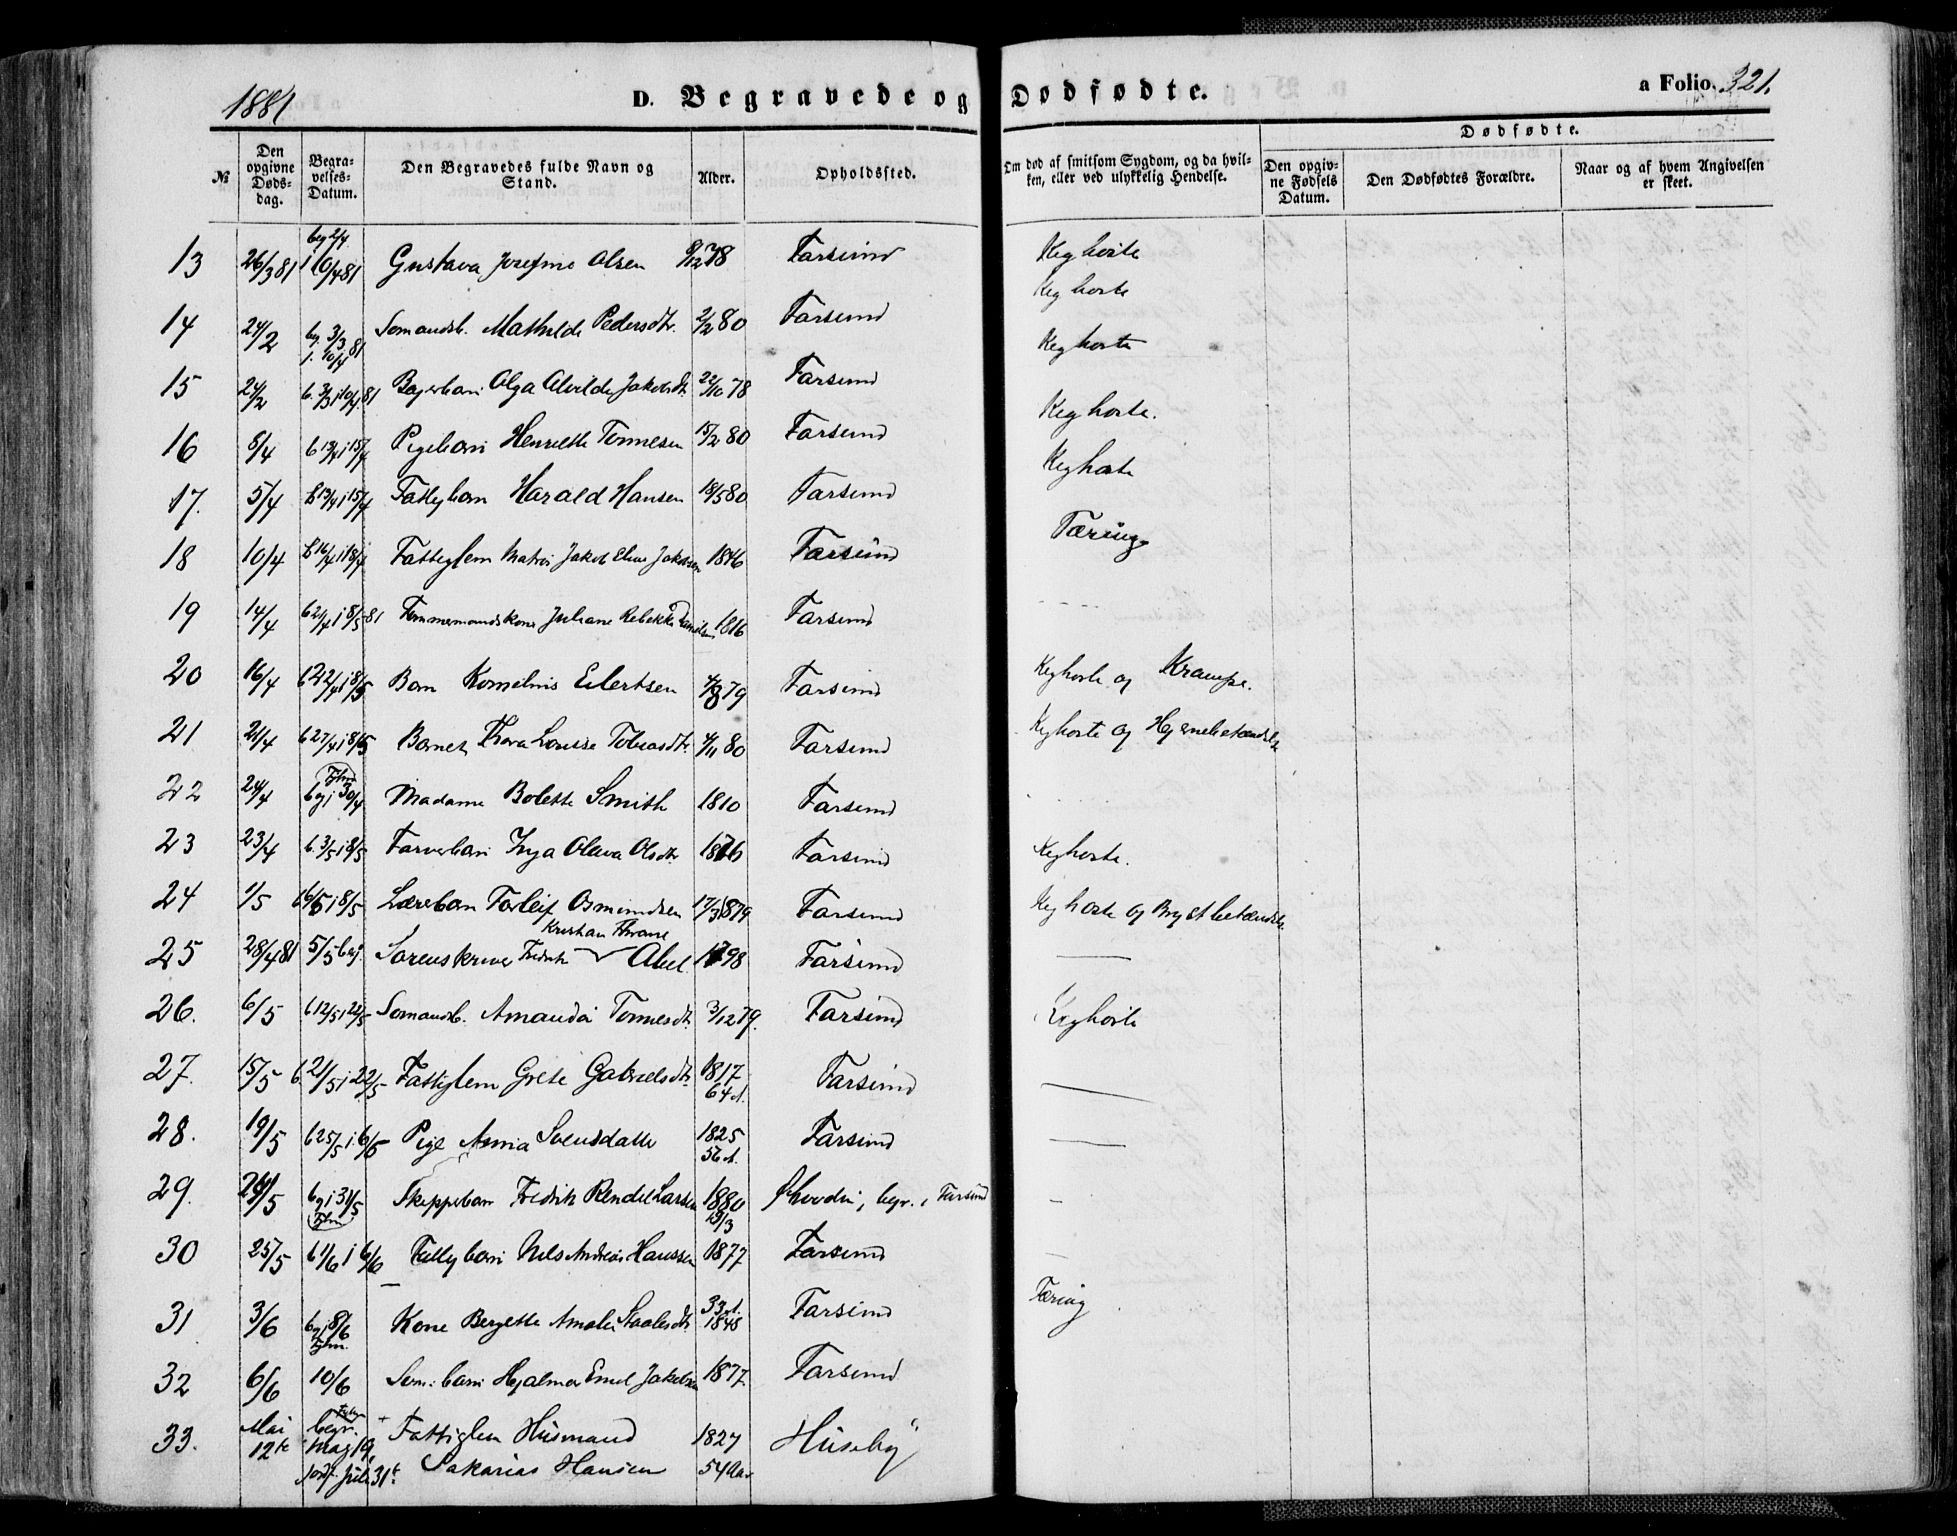 1881
D. Begravede og Dødfødte.
a Folio 321.
Dødfødte.
№ Den opgivne Døds-dag. Begra-velses-Datum. Den Begravedes fulde Navn og Stand. Alder. Opholdssted. Om død af smitsom Sygdom, og da hvil-ken, eller ved ulykkelig Hendelse. Den opgiv-ne Fødsels Datum. Den Dødfødtes Forældre. Naar og af hvem Angivelsen er skeet.
beg 2/4
13 26/3 81 10/4 81 Gustava Josefine Olsen 8/12 78 Farsund Kighoste
Kighoste
14 24/2 b. 3/3 j. 10/4 81 Sømandsb. Mathilde Pedersdtr. 2/2 80 Farsund Kighoste
15 24/2 b. 3/3 i 10/4 81 Olga Alvilde Jakobsdtr. 22/10 78 Farsund
16 8/4 b 13/4 i 15/4 Pigebarn Henriette Tønnesen 15/2 80 Farsund Kighoste.
17. 5/4 b 13/4 i 15/4 Fattigbarn Harald Hansen 18/5 80 Farsund Kighoste
18 10/4 b 16/4 i 18/4 Fattiglem Jakob Jakobsen 1846 Farsund Tæring
19 14/4 b 21/4 i 8/5 81 Tømmermandskone Juliane Rebekka 1816 Farsund
20 16/4 b 22/4 i 8/5 Barn Kornelius Eilertsen 79 Farsund Kighoste og Krampe.
21 21/4 b 27/4 i 8/5 Barnet Thora Lovise Tobiasdtr. 4/11 80 Farsund Kighoste og Hjernebetændelse
22 24/4 beg i 30/4 Madame Bolette Smith 1810 Farsund
23 23/4 b. 3/5 i 8/5 Farverbarn Inga Olava Olsdtr 1876 Farsund Kighoste.
24 1/5 b 6/5 i 8/5 Lærerbarn Torleif Osmundsen 17/3 1879 Farsund Kighoste og Brystbetændelse
Kristian Thrane
25 28/4 81 5/5 beg. Sorenskriver Fredrik Abel 1798 Farsund
26. 6/5 b 12/5 i 22/5 Sømandsb. Amanda Tønnesdtr. 3/12 79. Farsund Kighoste
27. 15/5 b. 21/5 i 22/5 Fattiglem Grete Gabrielsdtr. 1817 Farsund
64 A.
28. 19/5 b 25/5 i 6/6 Pige Anna Svensdatter 1825 Farsund
56 A.
29. 24/5 bg i 31/5 Skipperbarn Fredrik Rendel Larsen 1880 begr. i Farsund
19/3
30 25/5 b 1/6 i 6/6 Fattigbarn Nils Andreas Hanssen 1877 Farsund
33 A.
31 3/6 bg i 8/6 Kone Bergette Amalie Staalesdtr. 1848 Farsund Tæring
32 6/6 10/6 Søm. barn Hjalmar Emil Jakobsen 1877 Farsund
33. Mai 12te begr. Mag 19 Fattiglem Husmand 1827 Huseby
Jordf. Juli 31t. Sakarias Hansen 54 Aar